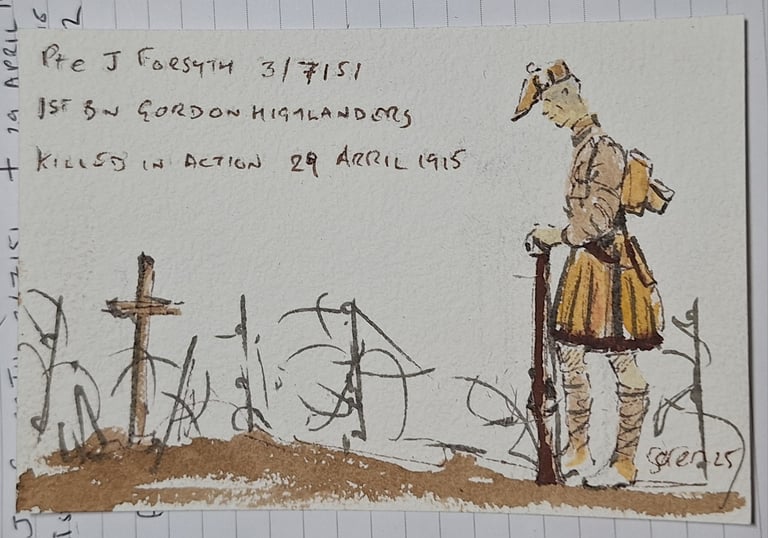 Pte J FORSYTH 3/7151
1ST BN GORDON HIGHLANDERS
KILLED IN ACTION 29 APRIL 1915
+ 29 APRIL